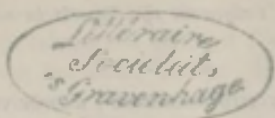 Littéraire
Sociëteit,
's Gravenhage